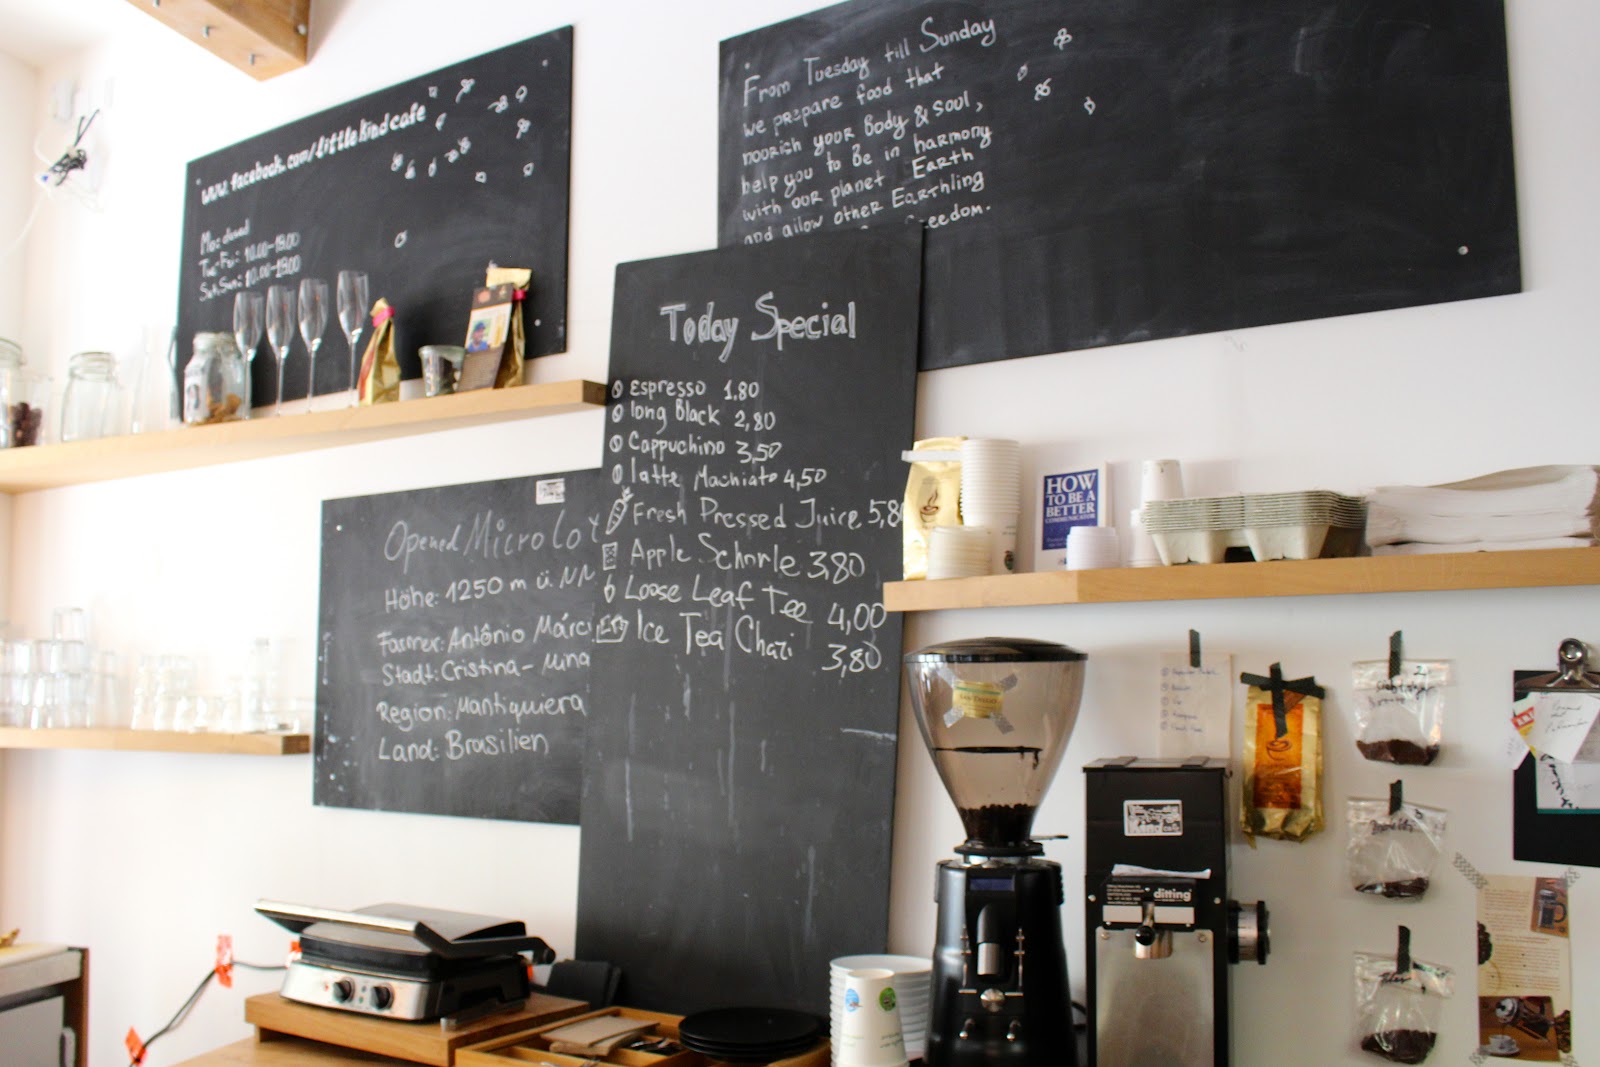 www.facebook.com/littlekindcafe
Mo: closed
Tue-Fri: 10.00-18.00
Sat, Sun: 10.00-18.00
From Tuesday till Sunday
we prepare food that
noorish your Body & soul,
help you to Be in harmony
with our planet Earth
and allow other Earthling
freedom.
Today Special
Espresso 1,80
long Black 2,80
Cappuchino 3,50
latte Machiato 4,50
Fresh Pressed Juice 5,80
Apple Schorle 3,80
Loose Leaf Tee 4,00
Ice Tea Chari 3,80
Opened Micro Lot
Höhe: 1250 m ü. NN
Farmer: António Márci
Stadt: Cristina - Mina
Region: Mantiquiera
Land: Brasilien
HOW
TO BE A
BETTER
COMMUNICATOR
ditting